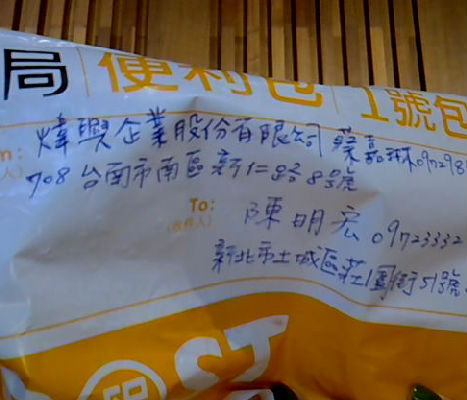 局 便利包 1號包
煒興企業股份有限公司 蔡嘉琳
708 台南市南區新仁路8號
To:
陳明宏 09723332
新北市土城區莊園街51號
POST